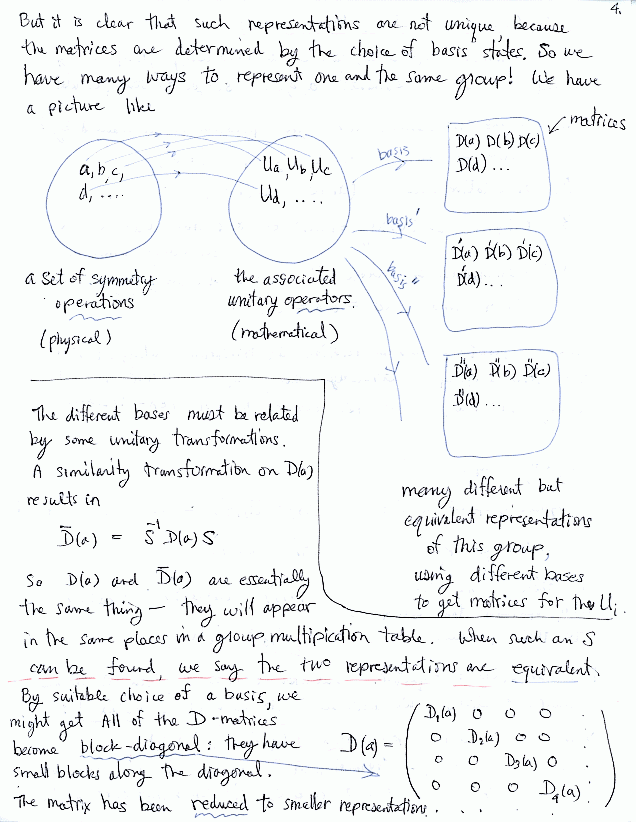 4.
But it is clear that such representations are not unique, because
the matrices are determined by the choice of basis states. So we
have many ways to represent one and the same group! We have
a picture like
matrices
a, b, c,
d, ....
Ua, Ub, Uc
Ud, ....
basis
D(a) D(b) D(c)
D(d) ...
basis'
D'(a) D'(b) D'(c)
D'(d) ...
basis"
D"(a) D"(b) D"(c)
D"(d) ...
a set of symmetry
operations
(physical)
the associated
unitary operators.
(mathematical)
many different but
equivalent representations
of this group,
using different bases
to get matrices for the Ui.
The different bases must be related
by some unitary transformations.
A similarity transformation on D(a)
results in
D̄(a) = S⁻¹ D(a) S
So D(a) and D̄(a) are essentially
the same thing — they will appear
in the same places in a group multipication table. When such an S
can be found, we say the two representations are equivalent.
By suitable choice of a basis, we
might get All of the D-matrices
become block-diagonal: they have
small blocks along the diagonal.
D(a) =
D₁(a) 0 0 0 .
0 D₂(a) 0 0 .
0 0 D₃(a) 0 .
0 0 0 D₄(a) .
. . . . .
The matrix has been reduced to smaller representations.